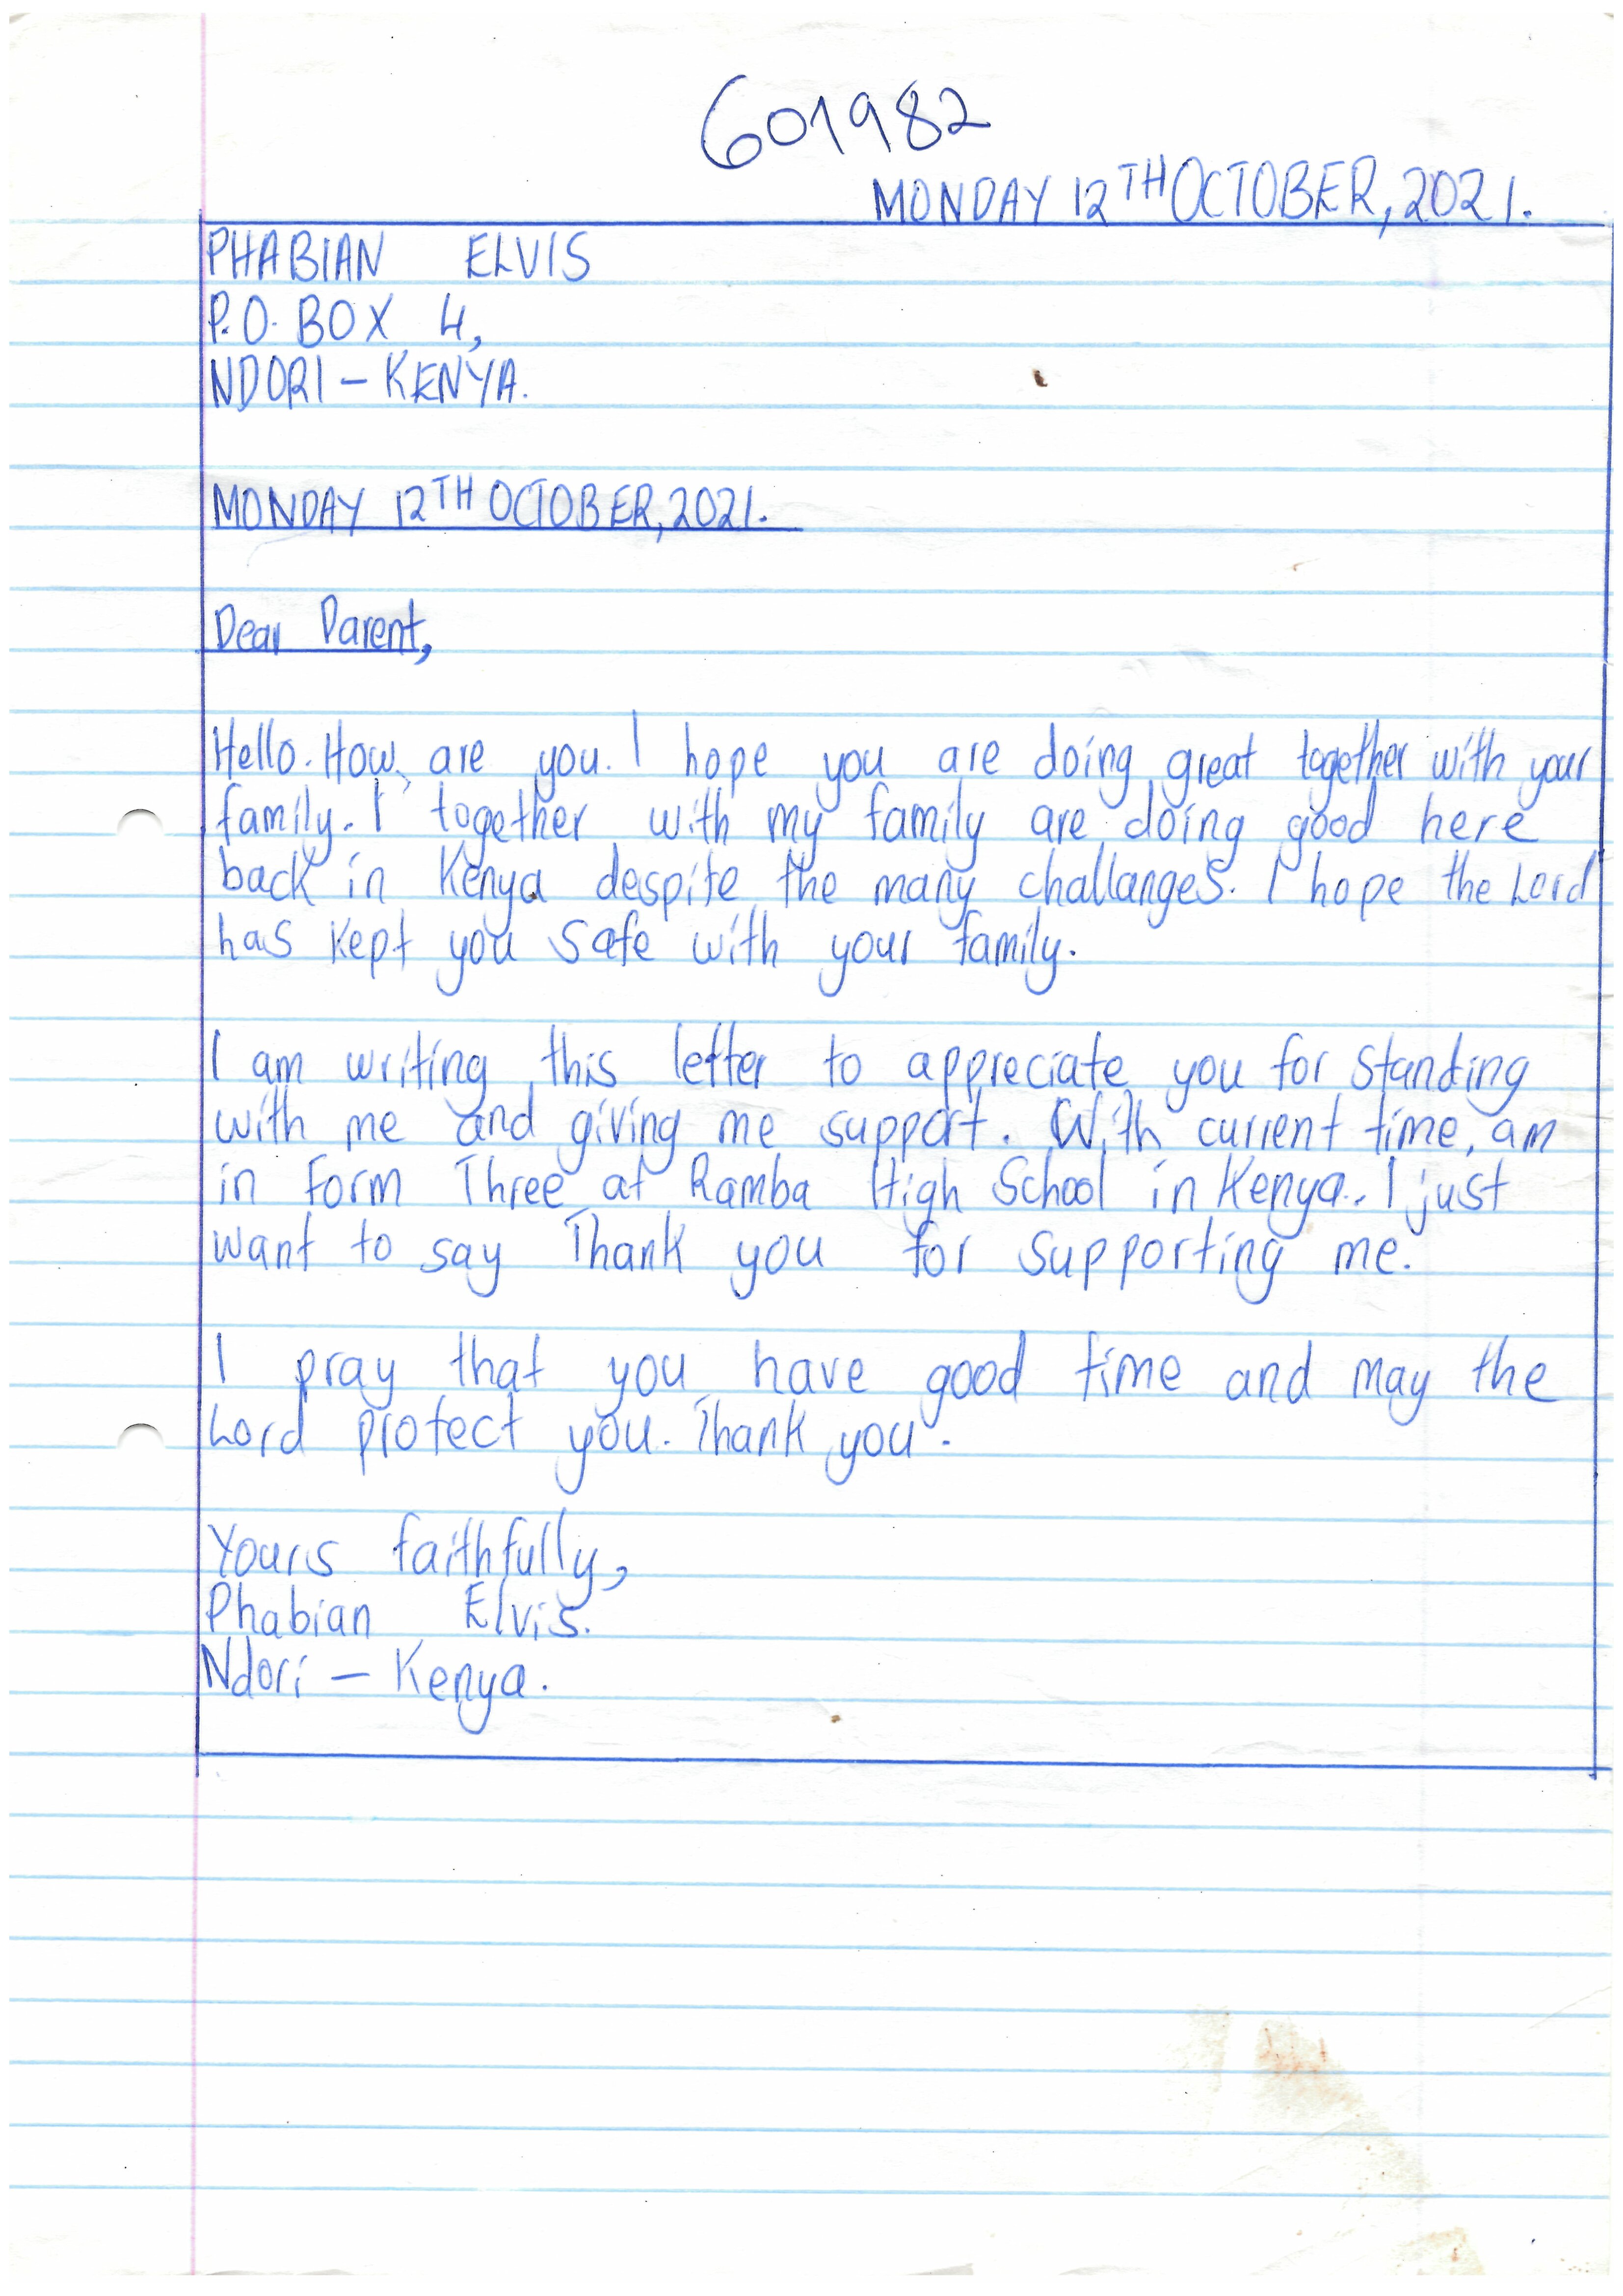 601982
MONDAY 12TH OCTOBER, 2021.
PHABIAN ELVIS
P.O. BOX 4,
NDORI - KENYA.
MONDAY 12TH OCTOBER, 2021.
Dear Parent,
Hello. How are you. I hope you are doing great together with your
family. I together with my family are doing good here
back in Kenya despite the many challanges. I hope the Lord
has kept you safe with your family.
I am writing this letter to appreciate you for standing
with me and giving me support. With current time, am
in Form Three at Ramba High School in Kenya. I just
want to say Thank you for supporting me.
I pray that you have good time and may the
Lord protect you. Thank you.
Yours faithfully,
Phabian Elvis.
Ndori - Kenya.